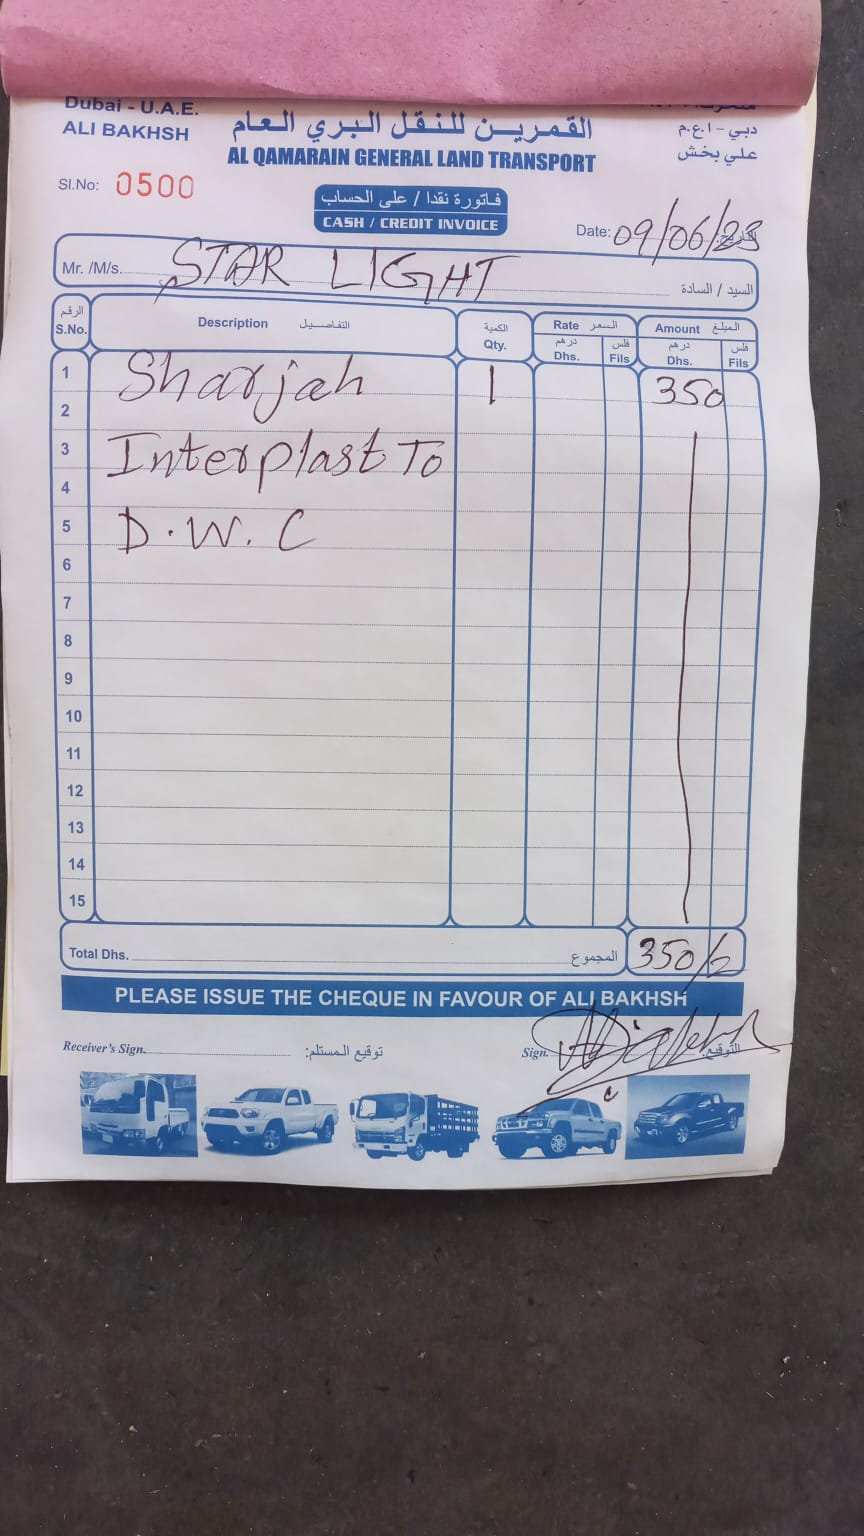 Dubai - U.A.E.
ALI BAKHSH
القمريـن للنقل البري العام
AL QAMARAIN GENERAL LAND TRANSPORT
دبي - ا.ع.م
علي بخش
Sl.No: 0500
فاتورة نقدا / على الحساب
CASH / CREDIT INVOICE
Date: 09/06/23 التاريخ:
Mr. /M/s. STAR LIGHT السيد / السادة
الرقم S.No.
Description التفاصـيـل
الكمية Qty.
Rate السـعـر
درهم Dhs. فلس Fils
Amount المبلـغ
درهم Dhs. فلس Fils
1 Sharjah 1 350
2
3 Interplast To
4
5 D.W.C
6
7
8
9
10
11
12
13
14
15
Total Dhs. المجموع 350/
PLEASE ISSUE THE CHEQUE IN FAVOUR OF ALI BAKHSH
Receiver's Sign. توقيع المستلم:
Sign. التوقيع: